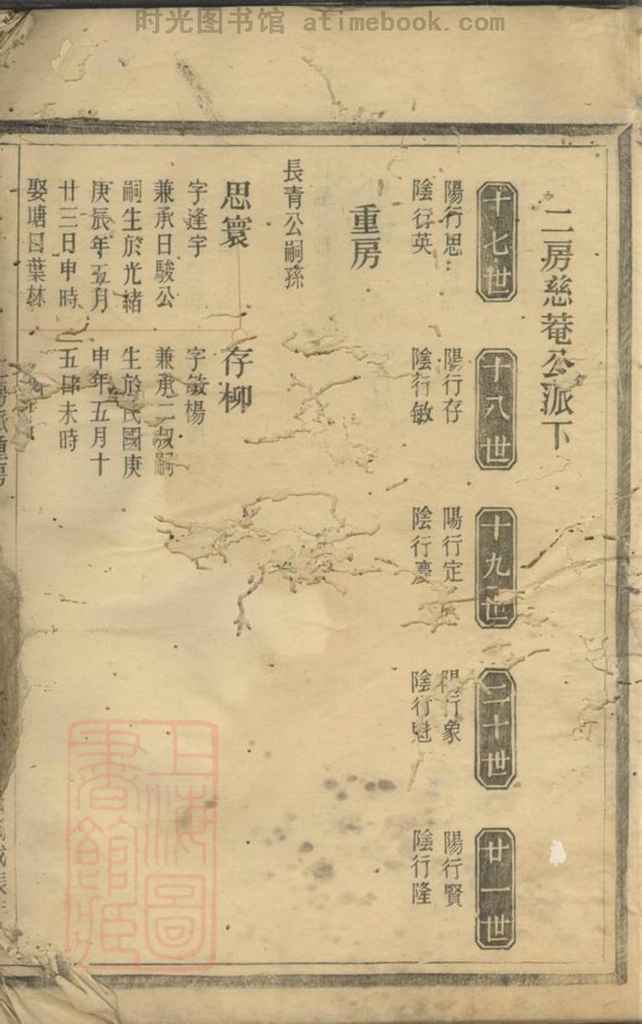 时光图书馆 atimebook.com
二房慈菴公派下
十七世
陽行思
陰行英
十八世
陽行存
陰行敏
十九世
陽行定
陰行慶
二十世
陽行象
陰行
廿一世
陽行賢
陰行隆
重房
長青公嗣孫
思寰
字逢宇
兼承日駿公
嗣生於光緒
庚辰年五月
廿三日申時
娶塘日葉林
存柳
字敬楊
兼承二叔嗣
生於民國庚
申年五月十
五日未時
上海圖
書館